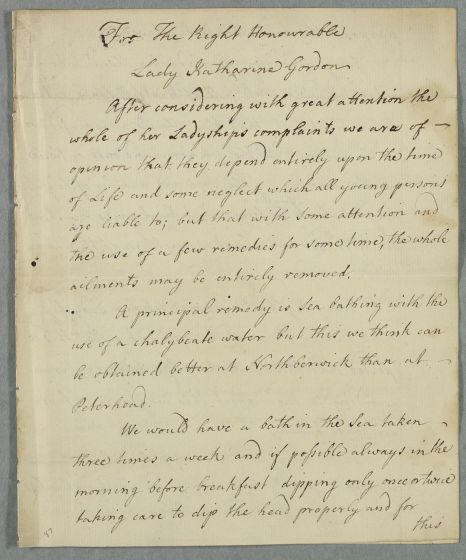 For The Right Honourable
Lady Katharine Gordon
After considering with great attention the
whole of her Ladyships complaints we are of —
opinion that they depend entirely upon the time
of Life and some neglect which all young persons
are liable to; but that with some attention and
the use of a few remedies for some time, the whole
ailments may be entirely removed.
A principal remedy is sea bathing with the
use of a chalybeate water but this we think can
be obtained better at Northberwick than at —
Peterhead.
We would have a bath in the sea taken —
three times a week and if possible always in the
morning before breakfast dipping only once or twice
taking care to dip the head properly and for
this